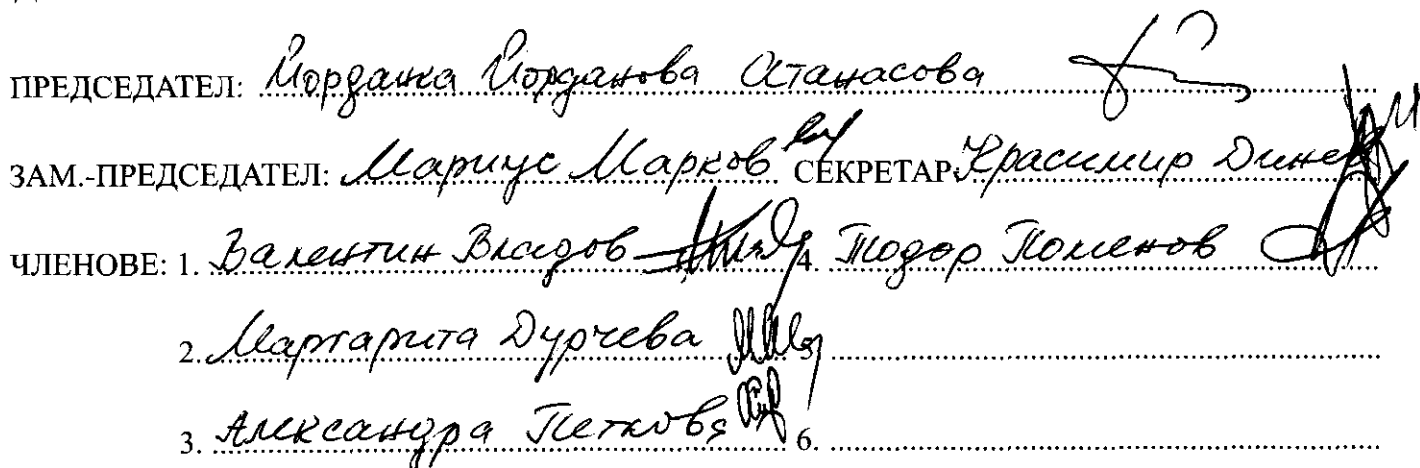 ПРЕДСЕДАТЕЛ: Йорданка Йорданова Атанасова
ЗАМ.-ПРЕДСЕДАТЕЛ: Мариус Марков СЕКРЕТАР: Красимир Динев
ЧЛЕНОВЕ: 1. Валентин Владов 4. Тодор Поменов
2. Маргарита Дурчева 5.
3. Александра Петкова 6.